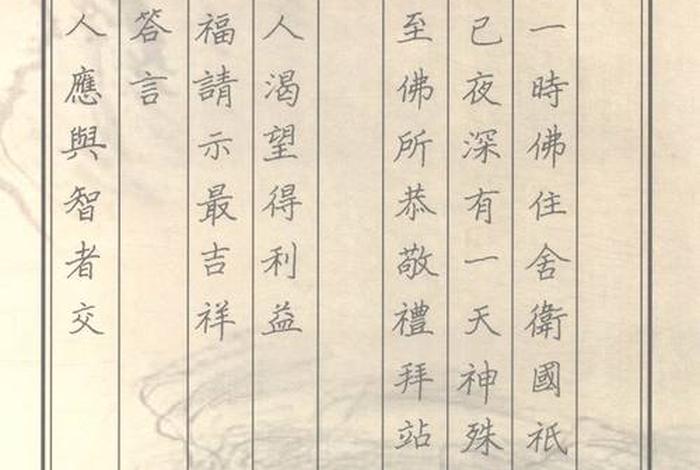 一時佛住舍衛國祇
已夜深有一天神殊
至佛所恭敬禮拜站
人渴望得利益
福請示最吉祥
答言
人應與智者交